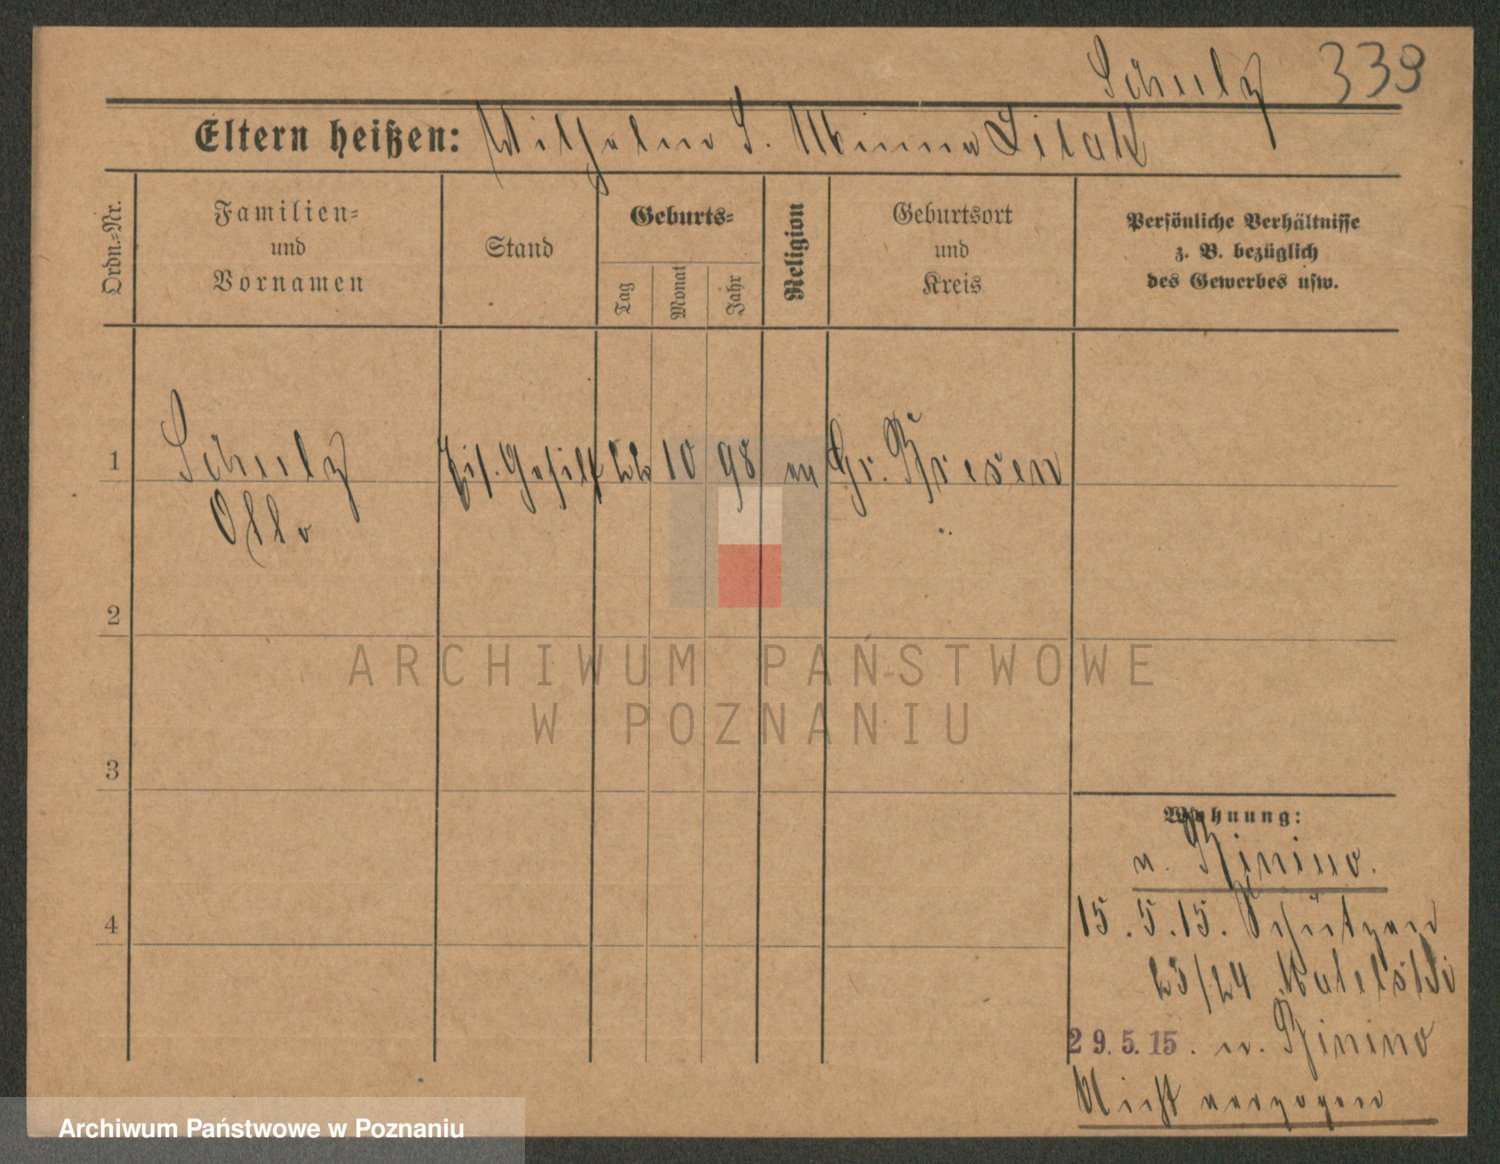 Schulz 339
Eltern heißen: Wilhelm S. Minna
Ordn.-Nr.
Familien-
und
Vornamen
Stand
Geburts-
Tag
Monat
Jahr
Religion
Geburtsort
und
Kreis
Persönliche Verhältnisse
z. B. bezüglich
des Gewerbes usw.
1 Schulz 10 98 ev Gr. Kresen
Otto
2
3
4
Wohnung:
n. Pinino.
15.5.15. Schützen
23/24
29.5.15. n. Pinino
Nicht verzogen
ARCHIWUM PAŃSTWOWE
W POZNANIU
Archiwum Państwowe w Poznaniu